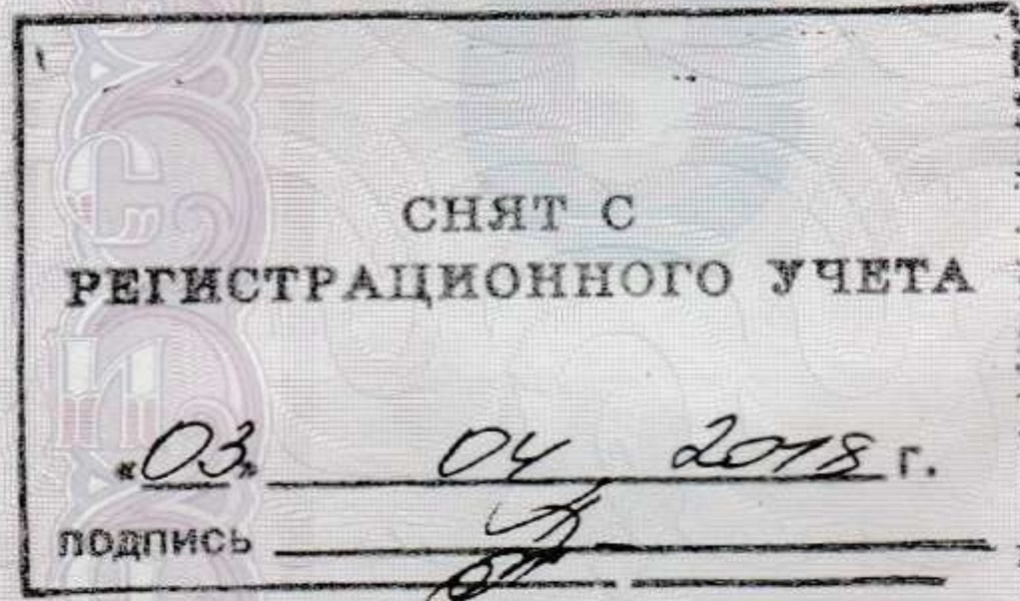 СНЯТ С
РЕГИСТРАЦИОННОГО УЧЕТА
«03» 04 2018 г.
подпись